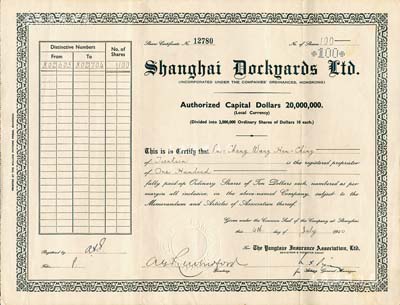 Share Certificate No. 12780
No. of Shares 100
*100*
Shanghai Dockyards Ltd.
(INCORPORATED UNDER THE COMPANIES' ORDINANCES, HONGKONG)
Authorized Capital Dollars 20,000,000.
(Local Currency)
(Divided into 2,000,000 Ordinary Shares of Dollars 10 each.)
Distinctive Numbers
No. of Shares
From
To
100
This is to Certify that
of Tientsin is the registered proprietor
of One Hundred
fully paid-up Ordinary Shares of Ten Dollars each, numbered as per-
margin all inclusive, in the above-named Company, subject to the
Memorandum and Articles of Association thereof.
Given under the Common Seal of the Company at Shanghai
this 4th day of July 1940
For The Yangtsze Insurance Association, Ltd.
Registered by
Secretary
for General Manager